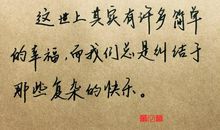 这世上其实有许多简单
的幸福，而我们总是纠结于
那些复杂的快乐。